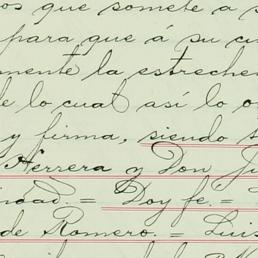 os que somete a s
para que á su cu
mente la estreche
de lo cual así lo o
y firma, siendo t
Herrera y Don Ju
cidad. = Doy fe. =
de Romero. = Luis